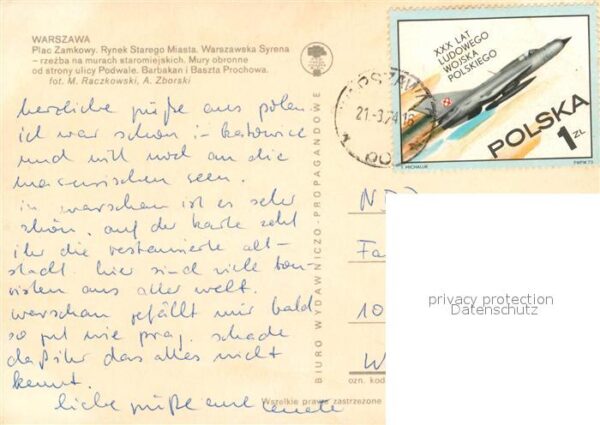 WARSZAWA
Plac Zamkowy. Rynek Starego Miasta. Warszawska Syrena
– rzeźba na murach staromiejskich. Mury obronne
od strony ulicy Podwale. Barbakan i Baszta Prochowa.
fot. M. Raczkowski, A. Zborski
herzliche grüße aus polen.
ich war schon in katowice
und will noch an die
masurischen seen.
in warschau ist es sehr
schön. auf der karte seht
ihr die restaurierte alt-
stadt. hier sind viele tou-
risten aus aller welt.
warschau gefällt mir bald
so gut wie prag. schade
daß ihr das alles nicht
kennt.
liebe grüße eure
BIURO WYDAWNICZO-PROPAGANDOWE
WARSZAWA
21.-3.74.16
XXX LAT
LUDOWEGO
WOJSKA
POLSKIEGO
POLSKA
1 ZŁ
F. MICHALUK
PWPW.73
Fa
10
W
ozn. koda
Wszelkie prawa zastrzeżone
privacy protection
Datenschutz